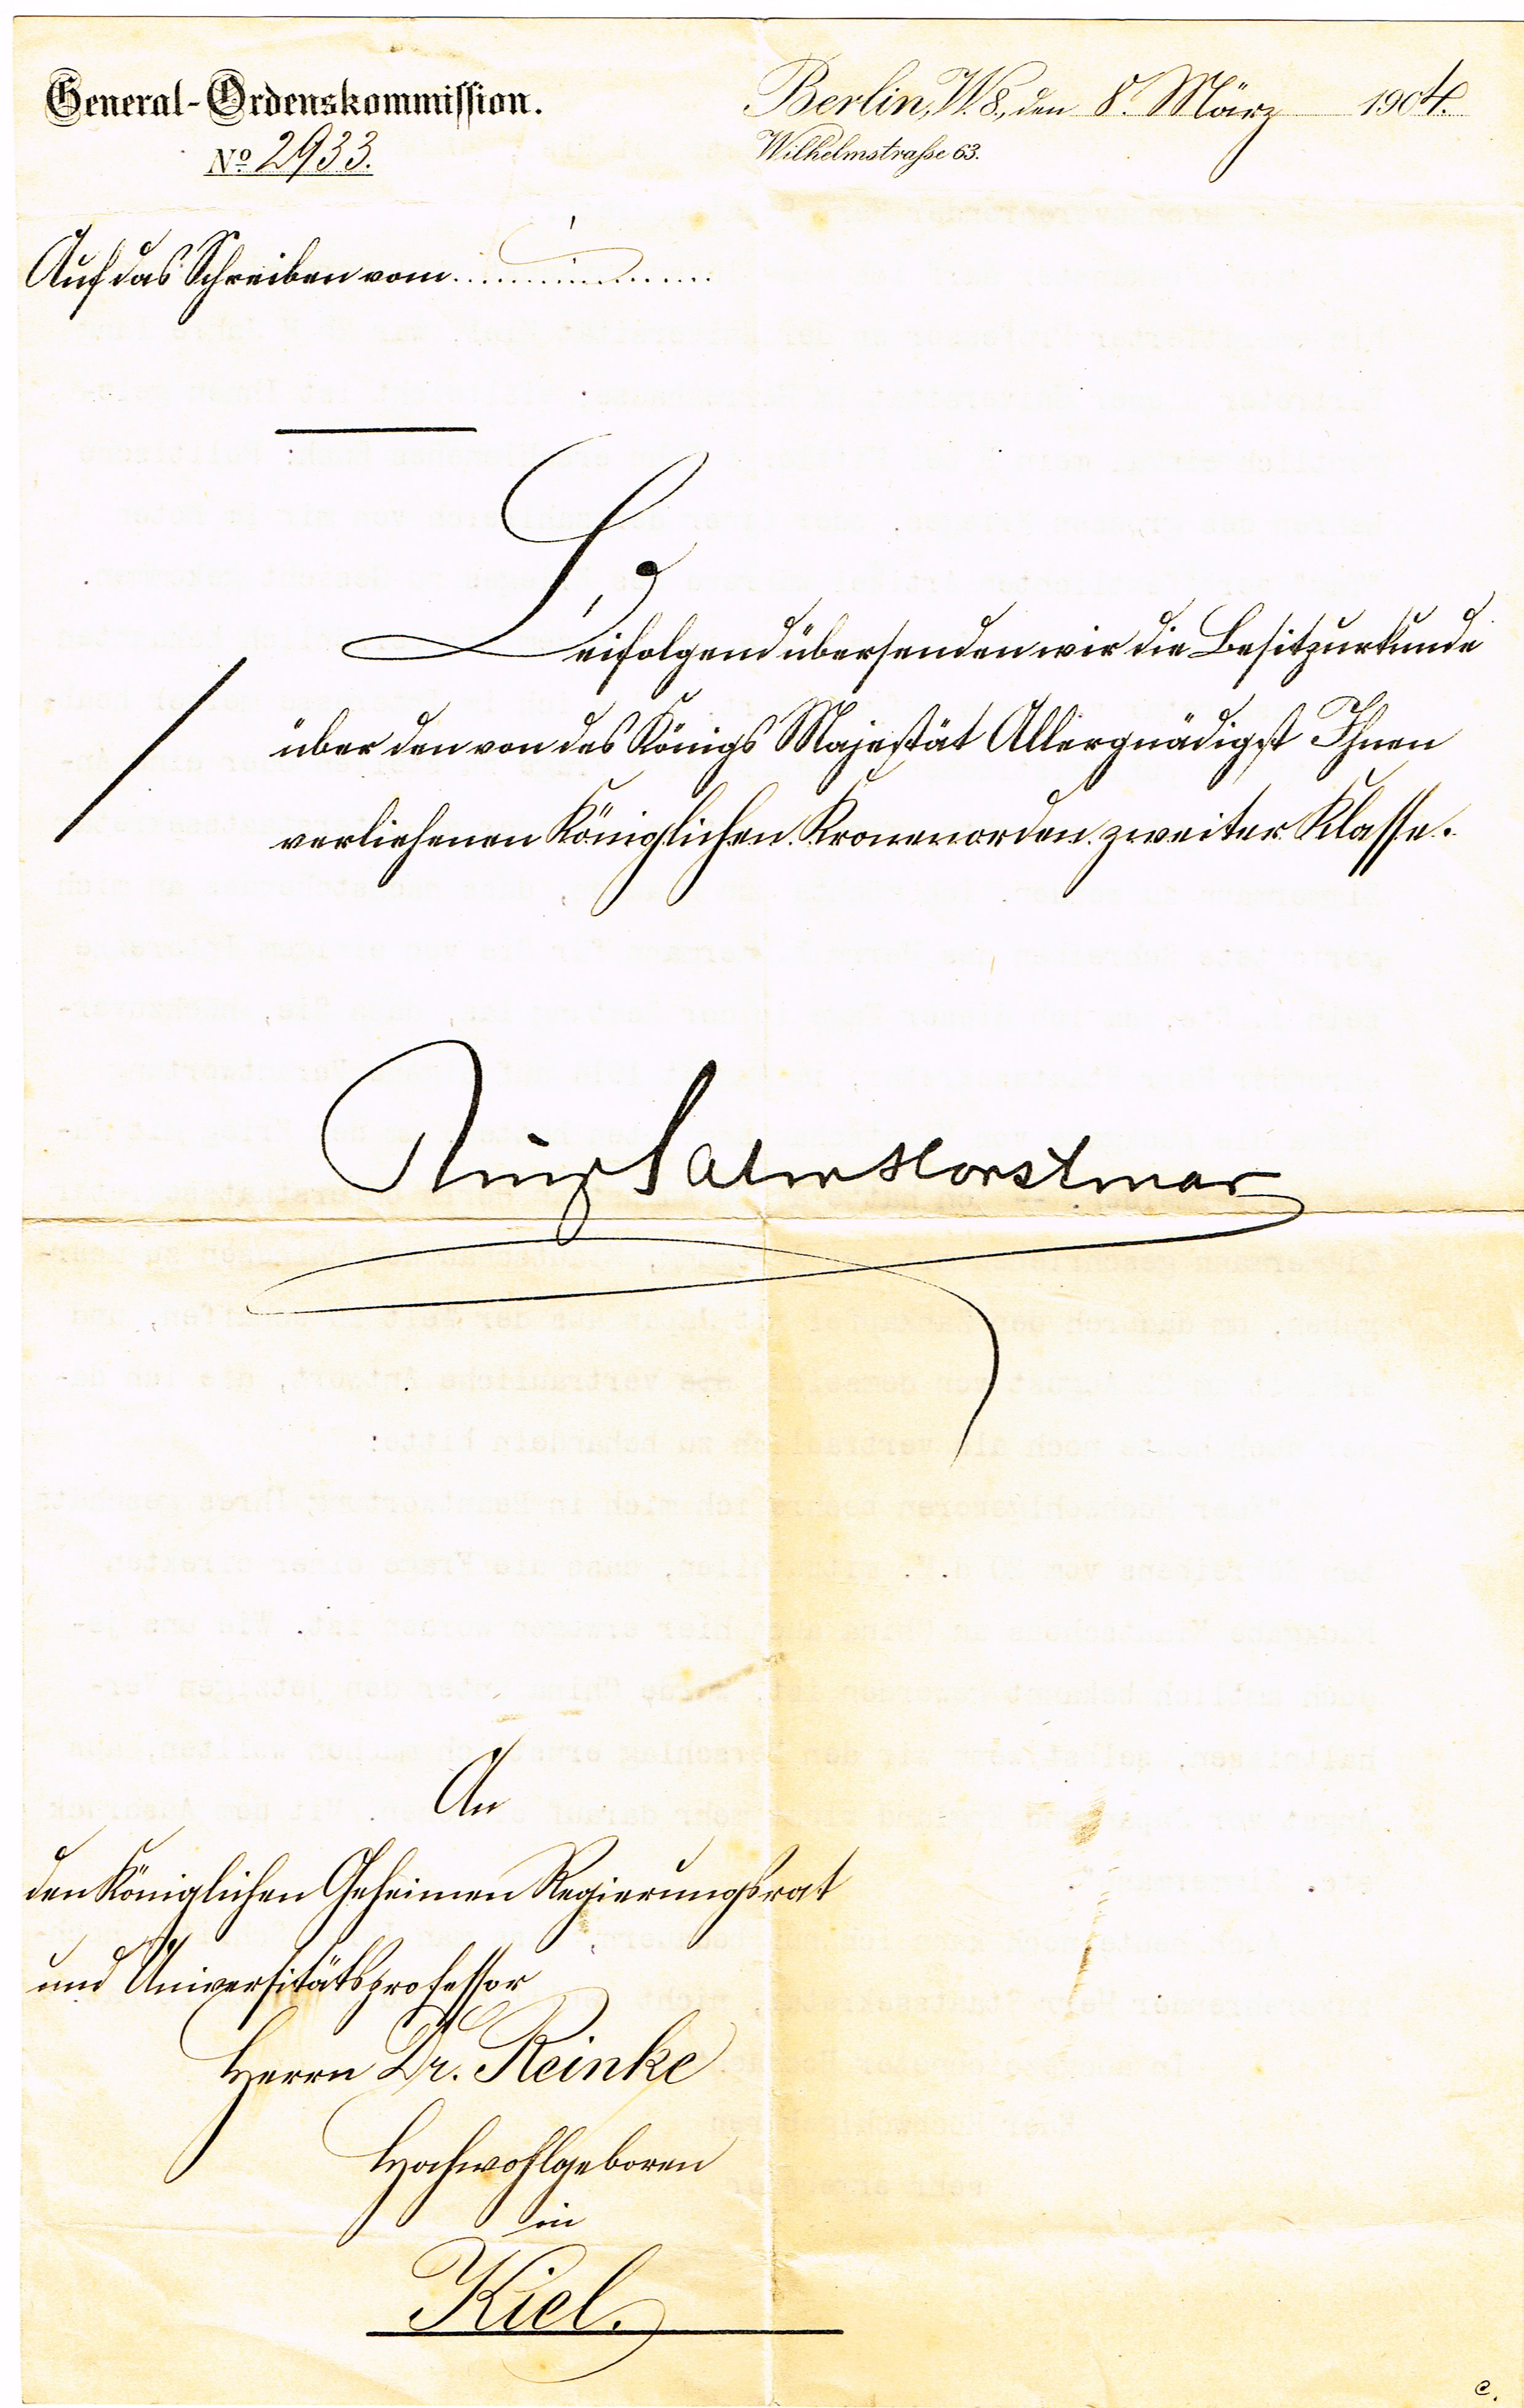 General-Ordenskommission.
Berlin, W. 8., den 8. März 1904.
No 2933.
Wilhelmstrasse 63.
Auf das Schreiben vom
Beifolgend übersenden wir die Besitzurkunde
über den von des Königs Majestät Allergnädigst Ihnen
verliehenen Königlichen Kronenorden zweiter Klasse.
Prinz Salm Horstmar
An
den Königlichen Geheimen Regierungsrat
und Universitätsprofessor
Herrn Dr. Reinke
Hochwohlgeboren
in
Kiel.
e.